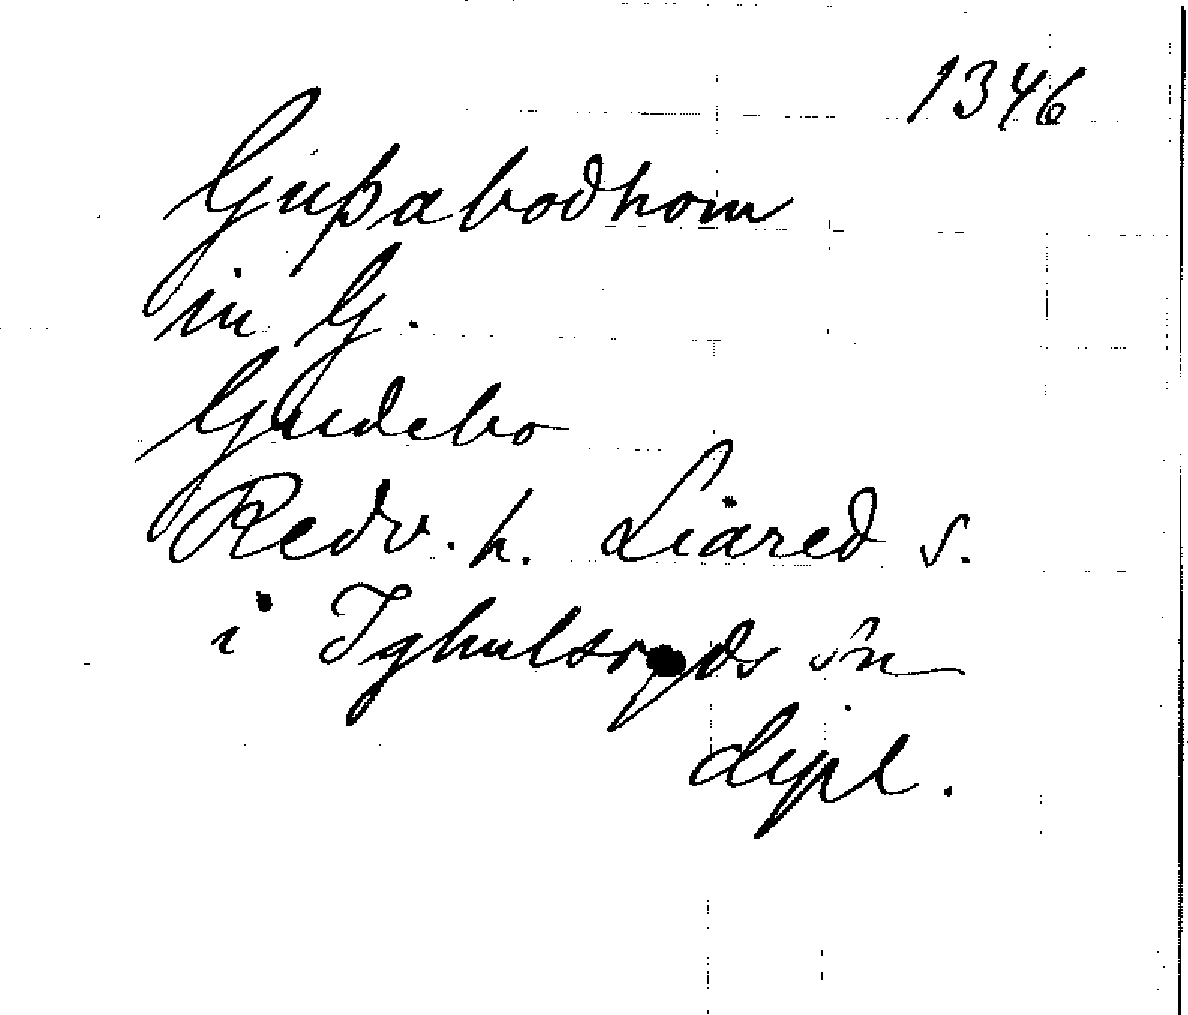 1346
Guþabodhom
in G.
Gudebo
Redv. h. Liared s.
i Ighulsryds sn
dipl.